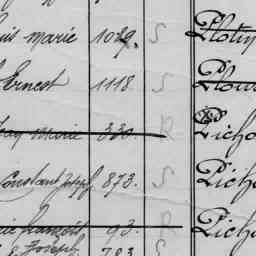 uis marie 1029. S Plotin
Ernest 1118. S Plou
Jean Marie 330. R Picho
Constant Joseph 873. S Picho
rie françois 93. R Picho
& Joseph 783 S